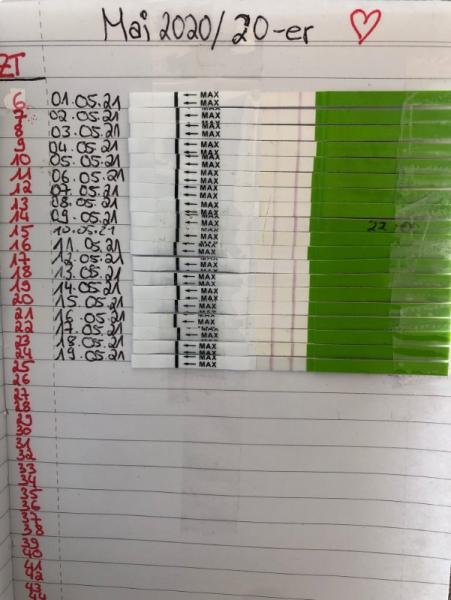 Mai 2020/ 20-er ♡
ZT
6 01.05.21 ← MAX
7 02.05.21 ← MAX
8 03.05.21 ← MAX
9 04.05.21 ← MAX
10 05.05.21 ← MAX
11 06.05.21 ← MAX
12 07.05.21 ← MAX
13 08.05.21 ← MAX
14 09.05.21 ← MAX
15 10.05.21 ← MAX
16 11.05.21 ← MAX
17 12.05.21 ← MAX
18 13.05.21 ← MAX
19 14.05.21 ← MAX
20 15.05.21 ← MAX
21 16.05.21 ← MAX
22 17.05.21 ← MAX
23 18.05.21 ← MAX
24 19.05.21 ← MAX
25
26
27
28
29
30
31
32
33
34
35
36
37
38
39
40
41
42
43
44